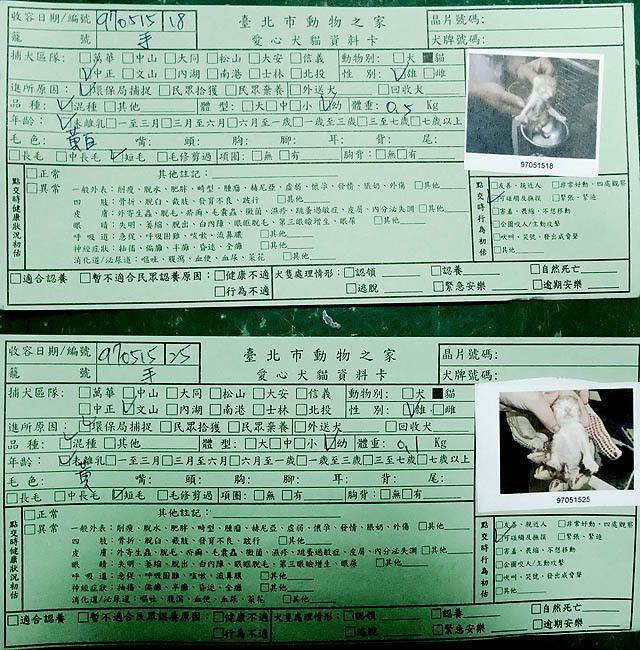 收容日期/編號 970515 18 臺北市動物之家 晶片號碼:
籠 號 手 愛心犬貓資料卡 犬牌號碼:
捕犬區隊: □萬華 □中山 □大同 □松山 □大安 □信義 動物別: □犬 ■貓
☑中正 □文山 □內湖 □南港 □士林 □北投 性 別: ☑雄 □雌
進所原因: ☑環保局捕捉 □民眾拾獲 □民眾棄養 □外送犬 □回收犬
品 種: ☑混種 □其他 體 型: □大 □中 □小 ☑幼 體重: 0.5 Kg
年齡: ☑未離乳 □一至三月 □三月至六月 □六月至一歲 □一歲至三歲 □三至七歲 □七歲以上
毛 色: 黃白 嘴: 頭: 胸: 腳: 耳: 背: 尾:
□長毛 □中長毛 ☑短毛 □毛修剪過 項圈: □無 □有 胸背: □無 □有
97051518
點交時健康狀況初估
□正常 其他註記:
□異常 一般外表: 削瘦、脫水、肥胖、畸型、腫瘤、赫尼亞、虛弱、懷孕、發情、脹奶、外傷 □其他
四 肢: 骨折、脫臼、截肢、發育不良、跛行 □其他
皮 膚: 外寄生蟲、脫毛、疥癬、毛囊蟲、黴菌、濕疹、跳蚤過敏症、皮膚、內分泌失調 □其他
眼 睛: 失明、萎縮、脫出、白內障、眼瞼脫毛、第三眼瞼增生、眼屎 □其他
呼 吸 道: 急促、呼吸困難、咳嗽、流鼻膿 □其他
神經症狀: 抽搐、偏癱、半癱、昏迷、全癱 □其他
消化道/泌尿道: 嘔吐、腹瀉、血便、血尿、菜花 □其他
點交時行為初估
□友善、親近人 □非常好動、四處觀察
☑可碰觸及撫摸 □緊張、緊迫
□害羞、長縮、不想移動
□企圖咬人/主動攻擊
□吠叫、哭號、發出威脅聲
□其他
□適合認養 □暫不適合民眾認養原因: □健康不適 犬隻處理情形: □認領 □認養 □自然死亡
□行為不適 □逃脫 □緊急安樂 □逾期安樂
收容日期/編號 970515 25 臺北市動物之家 晶片號碼:
籠 號 手 愛心犬貓資料卡 犬牌號碼:
捕犬區隊: □萬華 □中山 □大同 □松山 □大安 □信義 動物別: □犬 ■貓
□中正 ☑文山 □內湖 □南港 □士林 □北投 性 別: ☑雄 □雌
進所原因: ☑環保局捕捉 □民眾拾獲 □民眾棄養 □外送犬 □回收犬
品 種: ☑混種 □其他 體 型: □大 □中 □小 ☑幼 體重: 0.1 Kg
年齡: ☑未離乳 □一至三月 □三月至六月 □六月至一歲 □一歲至三歲 □三至七歲 □七歲以上
毛 色: 黃 嘴: 頭: 胸: 腳: 耳: 背: 尾:
□長毛 □中長毛 ☑短毛 □毛修剪過 項圈: □無 □有 胸背: □無 □有
97051525
點交時健康狀況初估
□正常 其他註記:
□異常 一般外表: 削瘦、脫水、肥胖、畸型、腫瘤、赫尼亞、虛弱、懷孕、發情、脹奶、外傷 □其他
四 肢: 骨折、脫臼、截肢、發育不良、跛行 □其他
皮 膚: 外寄生蟲、脫毛、疥癬、毛囊蟲、黴菌、濕疹、跳蚤過敏症、皮膚、內分泌失調 □其他
眼 睛: 失明、萎縮、脫出、白內障、眼瞼脫毛、第三眼瞼增生、眼屎 □其他
呼 吸 道: 急促、呼吸困難、咳嗽、流鼻膿 □其他
神經症狀: 抽搐、偏癱、半癱、昏迷、全癱 □其他
消化道/泌尿道: 嘔吐、腹瀉、血便、血尿、菜花 □其他
點交時行為初估
□友善、親近人 □非常好動、四處觀察
☑可碰觸及撫摸 □緊張、緊迫
□害羞、長縮、不想移動
□企圖咬人/主動攻擊
□吠叫、哭號、發出威脅聲
□其他
□適合認養 □暫不適合民眾認養原因: □健康不適 犬隻處理情形: □認領 □認養 □自然死亡
□行為不適 □逃脫 □緊急安樂 □逾期安樂